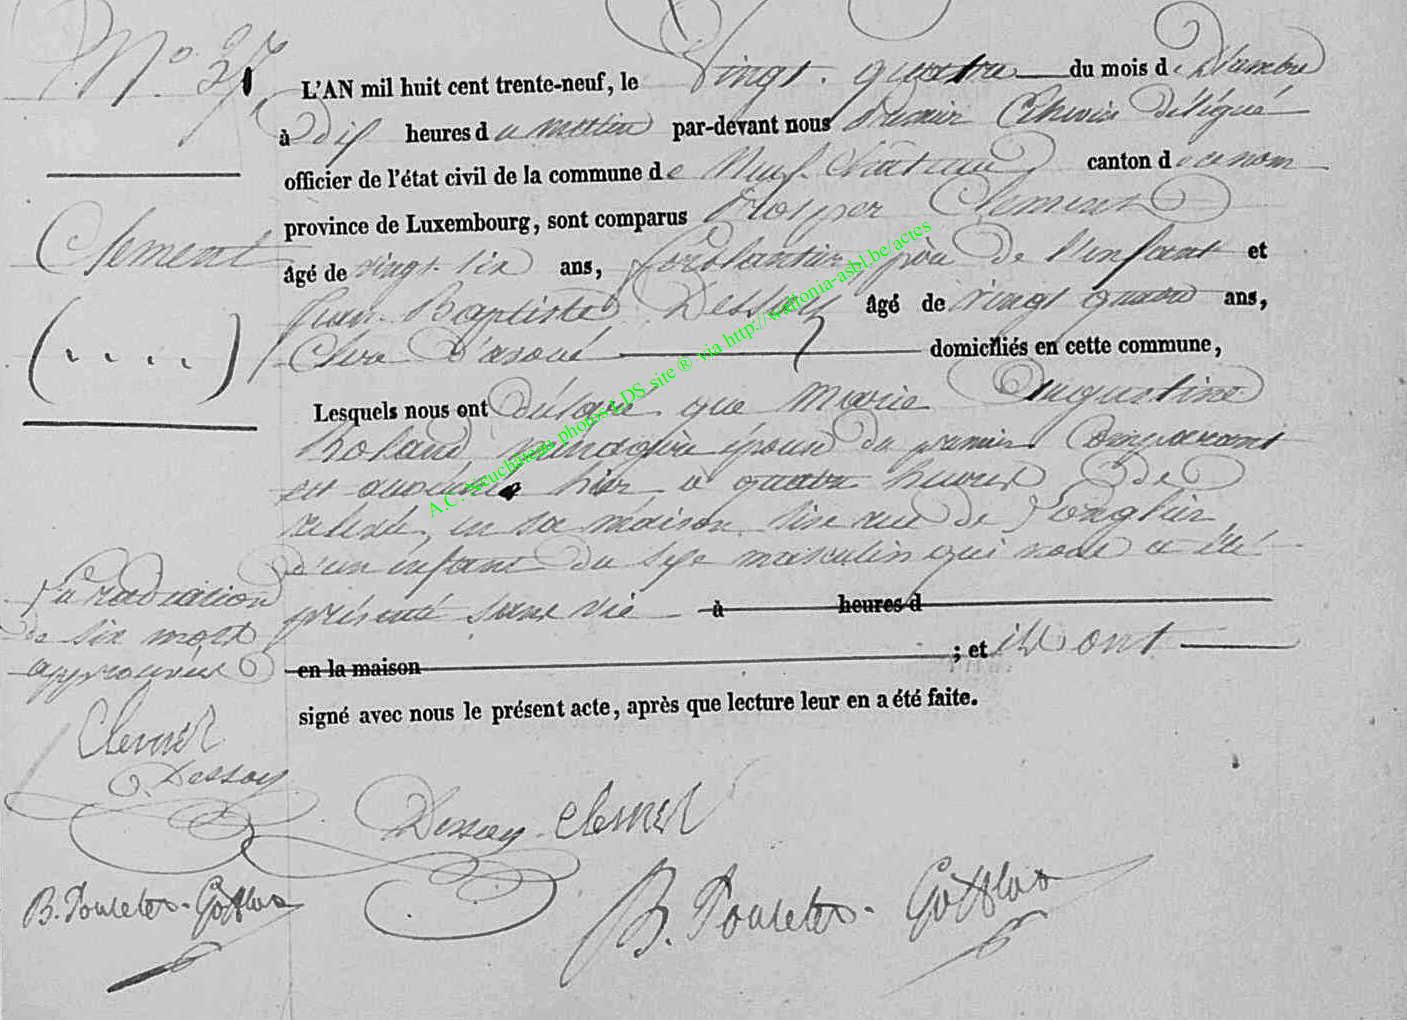 N° 27
L'AN mil huit cent trente-neuf, le Vingt quatre du mois de Décembre
à Dix heures du matin par-devant nous Premier Echevin délégué
officier de l'état civil de la commune de Neufchateau canton de ce nom
province de Luxembourg, sont comparus Prosper Clement
Clement
âgé de vingt six ans, ferblantier, père de l'enfant et
Jean Baptiste Dessoy âgé de vingt quatre ans,
(....)
Clerc d'avoué domiciliés en cette commune,
Lesquels nous ont déclaré que Marie Augustine
Roland ménagère épouse du premier Comparant
est accouchée hier à quatre heures de
relevée, en sa maison sise rue de Longlier
d'un enfant du sexe masculin qui nous a été
présenté sans vie à heures d
La radiation
de six mots
approuvée
en la maison ; et ils ont
signé avec nous le présent acte, après que lecture leur en a été faite.
Clement
Dessoy
Dessoy Clement
B. Poncelet - Gofflot
B. Poncelet - Gofflot
A.C. Neuchâteau photos LDS site ® via http://wallonia-asbl.be/actes